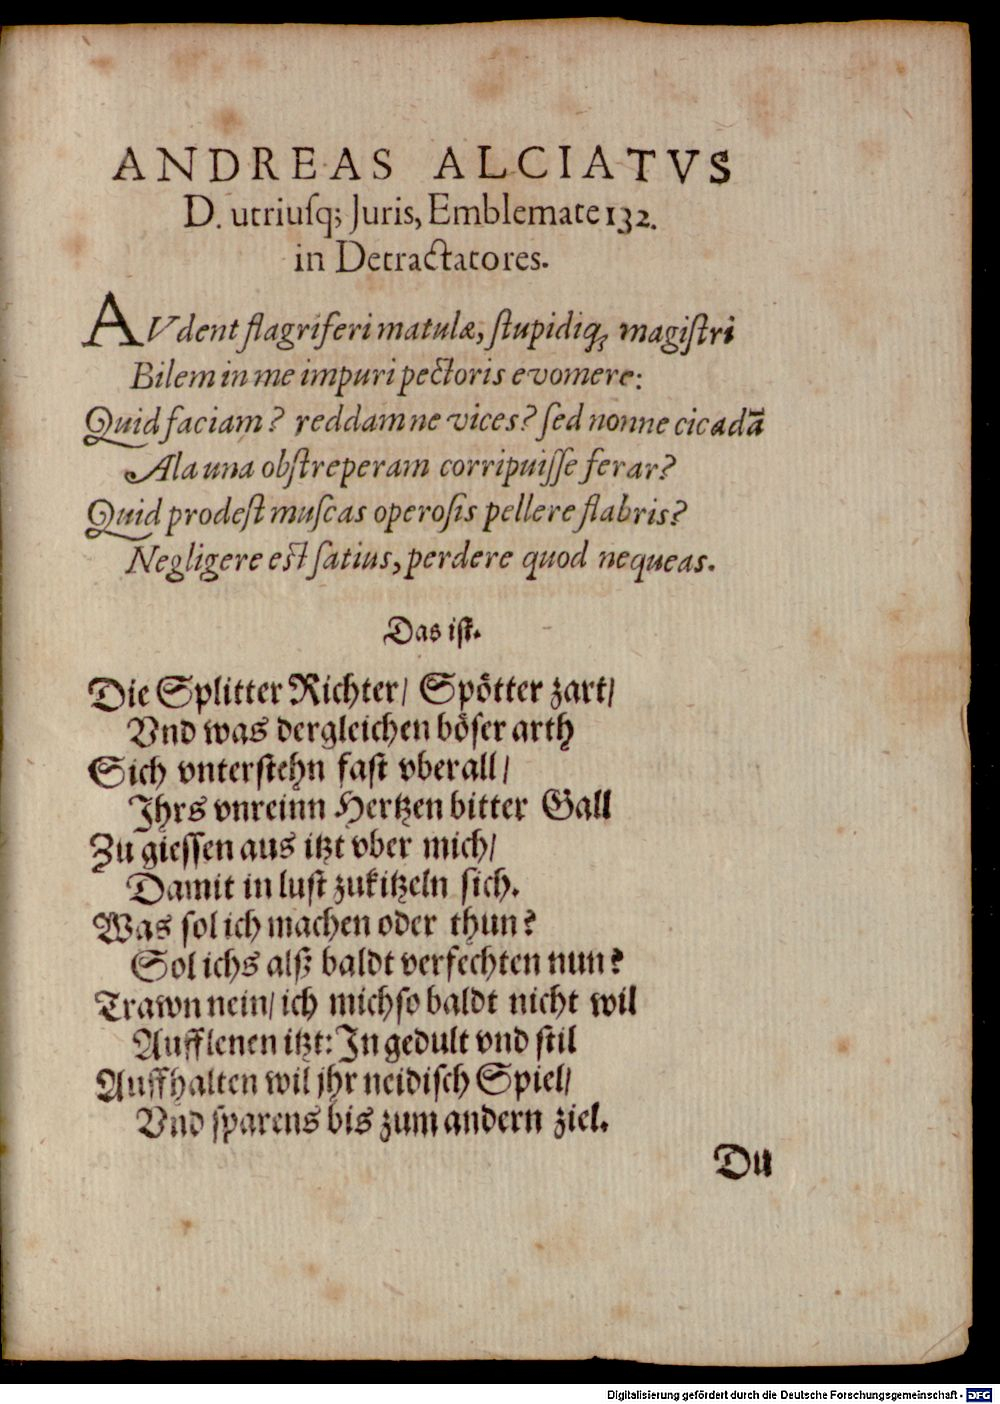 ANDREAS ALCIATVS
D. utriuſq; Juris, Emblemate 132.
in Detractatores.
AVdent flagriferi matulæ, ſtupidiq; magiſtri
Bilem in me impuri pectoris evomere:
Quid faciam? reddamne vices? ſed nonne cicadã
Ala una obſtreperam corripuiſſe ferar?
Quid prodeſt muſcas operoſis pellere flabris?
Negligere eſt ſatius, perdere quod nequeas.
Das iſt.
Die Splitter Richter/ Spoͤtter zart/
Vnd was dergleichen boͤſer arth
Sich vnterſtehn faſt vberall/
Ihrs vnreinn Hertzen bitter Gall
Zu gieſſen aus itzt vber mich/
Damit in luſt zukitzeln ſich.
Was ſol ich machen oder thun?
Sol ichs alß baldt verfechten nun?
Trawn nein/ ich mich ſo baldt nicht wil
Aufflenen itzt: In gedult vnd ſtil
Auffhalten wil jhr neidiſch Spiel/
Vnd ſparens bis zum andern ziel.
Du
Digitalisierung gefördert durch die Deutsche Forschungsgemeinschaft - DFG